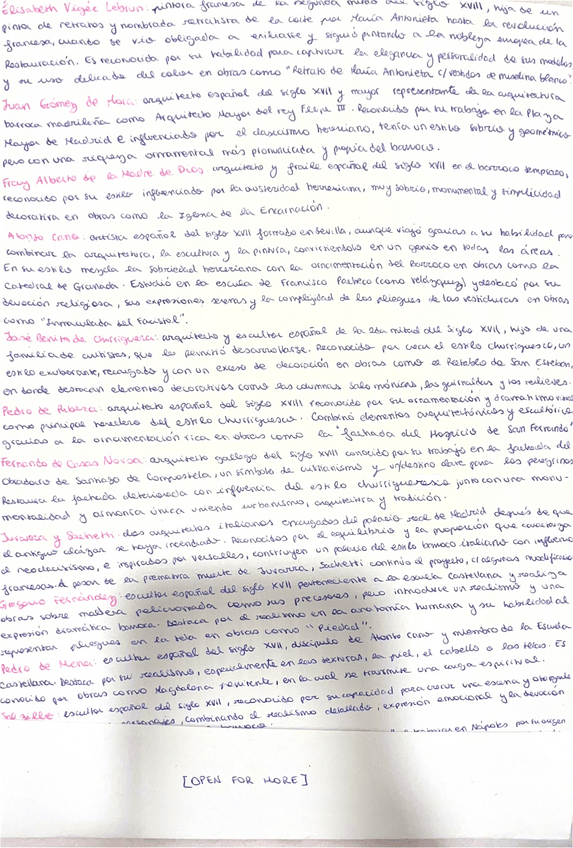 Élisabeth Vigée Lebrun: pintora francesa de la segunda mitad del siglo XVIII, hija de un
pintor de retratos y nombrada retratista de la corte por María Antonieta hasta la revolución
francesa, cuando se vio obligada a exiliarse y siguió pintando a la nobleza europea de la
Restauración. Es reconocida por su habilidad para capturar la elegancia y personalidad de sus modelos
y su uso delicado del color en obras como "Retrato de María Antonieta c/vestidos de muselina blanco".
Juan Gómez de Mora: arquitecto español del siglo XVII y mayor representante de la arquitectura
barroca madrileña como Arquitecto Mayor del rey Felipe III. Reconocido por su trabajo en la Plaza
Mayor de Madrid e influenciado por el clasicismo herreriano, tenía un estilo sobrio y geométrico
pero con una riqueza ornamental más pronunciada y propia del barroco.
Fray Alberto de la Madre de Dios arquitecto y fraile español del siglo XVII en el barroco temprano,
reconocido por su estilo influenciado por la austeridad herreriana, muy sobrio, monumental y simplicidad
decorativa en obras como la Iglesia de la Encarnación.
Alonso Cano: artista español del siglo XVII formado en Sevilla, aunque viajó gracias a su habilidad para
combinar la arquitectura, la escultura y la pintura, convirtiendolo en un genio en todas las áreas.
En su estilo mezcla la sobriedad herreriana con la ornamentación del barroco en obras como la
Catedral de Granada. Estudió en la escuela de Francisco Pacheco (como Velázquez) y destacó por su
devoción religiosa, sus expresiones serenas y la complejidad de los pliegues de las vestiduras en obras
como "Inmaculada del Facistol".
José Benito de Churriguera: arquitecto y escultor español de la 2da mitad del siglo XVII, hijo de una
familia de artistas, que le permitió desarrollarse. Reconocido por crear el estilo churrigueresco, un
estilo exuberante, recargado y con un exceso de decoración en obras como el Retablo de San Esteban,
en donde destacan elementos decorativos como las columnas salomónicas, las guirnaldas y los relieves.
Pedro de Ribera: arquitecto español del siglo XVIII reconocido por su ornamentación y dramatismo
como principal heredero del estilo churrigueresco. Combinó elementos arquitectónicos y escultóricos
gracias a la ornamentación rica en obras como la "fachada del Hospicio de San Fernando"
Fernando de Casas Novoa: arquitecto gallego del siglo XVIII conocido por su trabajo en la fachada del
Obradoiro de Santiago de Compostela, un símbolo de cristianismo y un destino clave para los peregrinos
Restaura la fachada deteriorada con influencia del estilo churrigueresco junto con una monu-
mentalidad y armonía única uniendo urbanismo, arquitectura y tradición.
Juvarra y Sachetti: dos arquitectos italianos encargados del palacio real de Madrid después de que
el antiguo alcázar se haya incendiado. Reconocidos por el equilibrio y la proporción que caracteriza
al neoclasicismo, e inspirados por Versalles, construyen un palacio del estilo barroco italiano con influencia
francesa. A pesar de la prematura muerte de Juvarra, Sachetti continúa el proyecto, c/algunas modificaciones
Gregorio Fernández: escultor español del siglo XVII perteneciente a la escuela castellana y realiza
obras sobre madera policromada como sus precesores, pero introduce un realismo y una
expresión dramática barroca. Destaca por el realismo en la anatomía humana y su habilidad al
representar pliegues en la tela en obras como "Piedad".
Pedro de Mena: escultor español del siglo XVII, discípulo de Alonso Cano y miembro de la Escuela
Castellana. Destaca por su realismo, especialmente en las texturas, la piel, el cabello o las telas. Es
conocido por obras como Magdalena penitente, en la cual se transmite una carga espiritual.
escultor español del siglo XVII, reconocido por su capacidad para crear una escena y otorgarle
personajes, combinando el realismo detallado, expresión emocional y la devoción
en Nápoles por su origen
[OPEN FOR MORE]